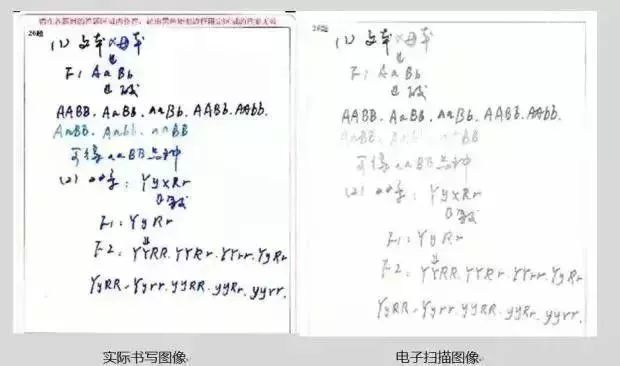 请在各题目的答题区域内作答，超出黑色矩形边框限定区域的答案无效
26题
(1) 父本×母本
↓
F1 AaBb
↓
AABB. AaBB. aaBb. AABb. AAbb.
AaBB. Aabb. aaBB
可得aaBB品种
(2) 亲本: YyxRr
F1: YyRr
↓
F2: YYRR. YYRr. YYrr. YyRr
YyRR. Yyrr. yyRR. yyRr. yyrr.
实际书写图像
26题
(1) 父本×母本
↓
F1 AaBb
↓
AABB. AaBB. aaBb. AABb. AAbb.
可得aaBB品种
(2) : YyxRr
F1: YyRr
↓
F2: YYRR. YYRr. YYrr. YyRr
YyRR. Yyrr. yyRR. yyRr. yyrr.
电子扫描图像